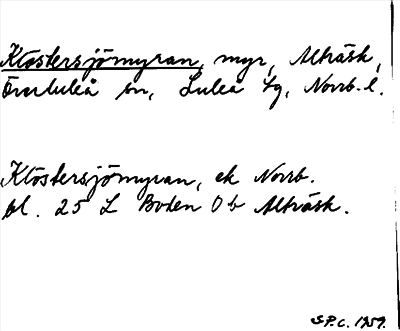 Klöstersjömyran, myr, Alträsk,
Överluleå sn, Luleå tg, Norrb. l.
Klöstersjömyran, ek Norrb.
bl. 25 L Boden Ob Alträsk.
S.P.C. 1959.